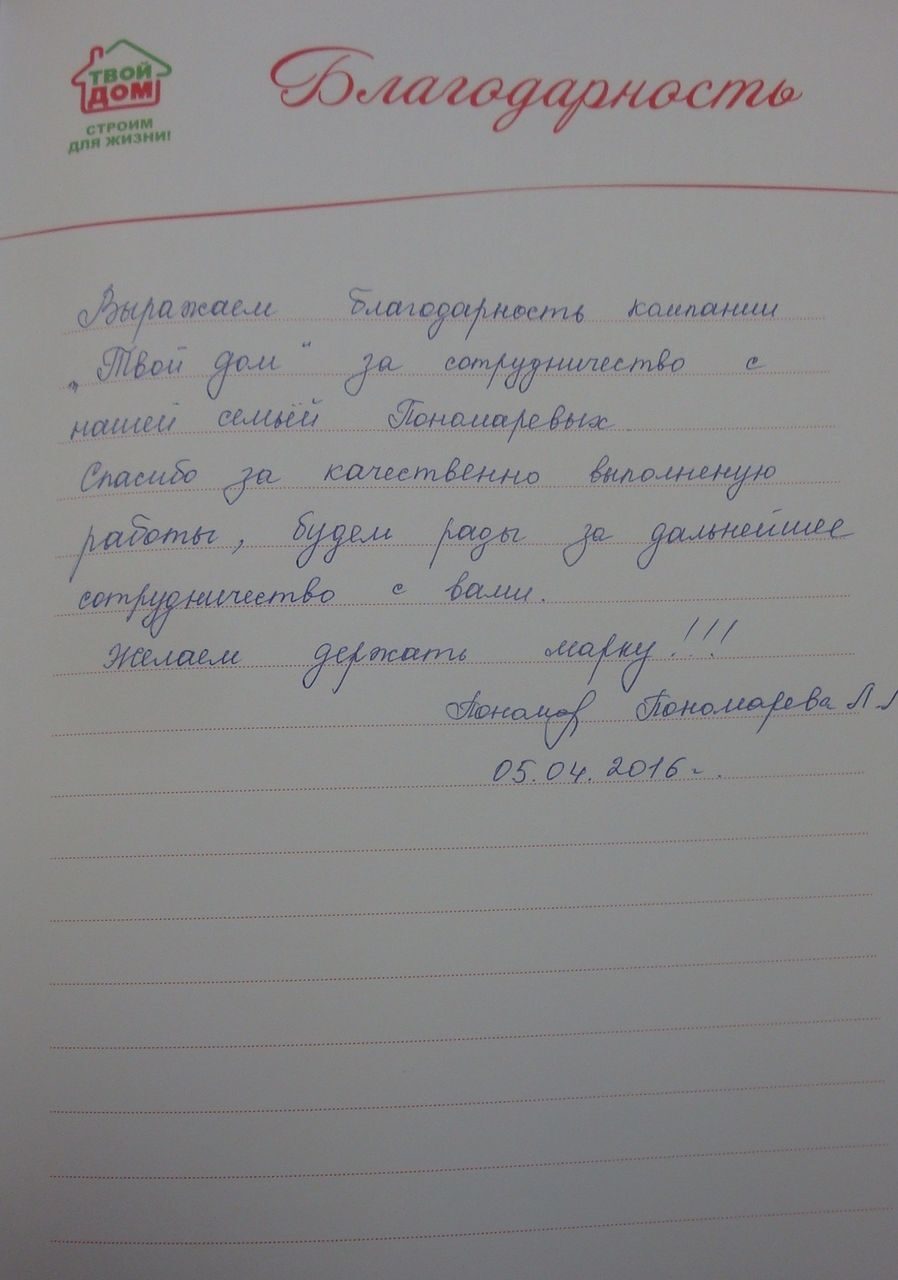 ТВОЙ
ДОМ
СТРОИМ
ДЛЯ ЖИЗНИ!
Благодарность
Выражаем благодарность компании
„Твой дом“ за сотрудничество с
нашей семьёй Пономаревых.
Спасибо за качественно выполненую
работы, будем рады за дальнейшее
сотрудничество с вами.
Желаем держать марку!!!
Пономарева Л.Л
05.04.2016г.